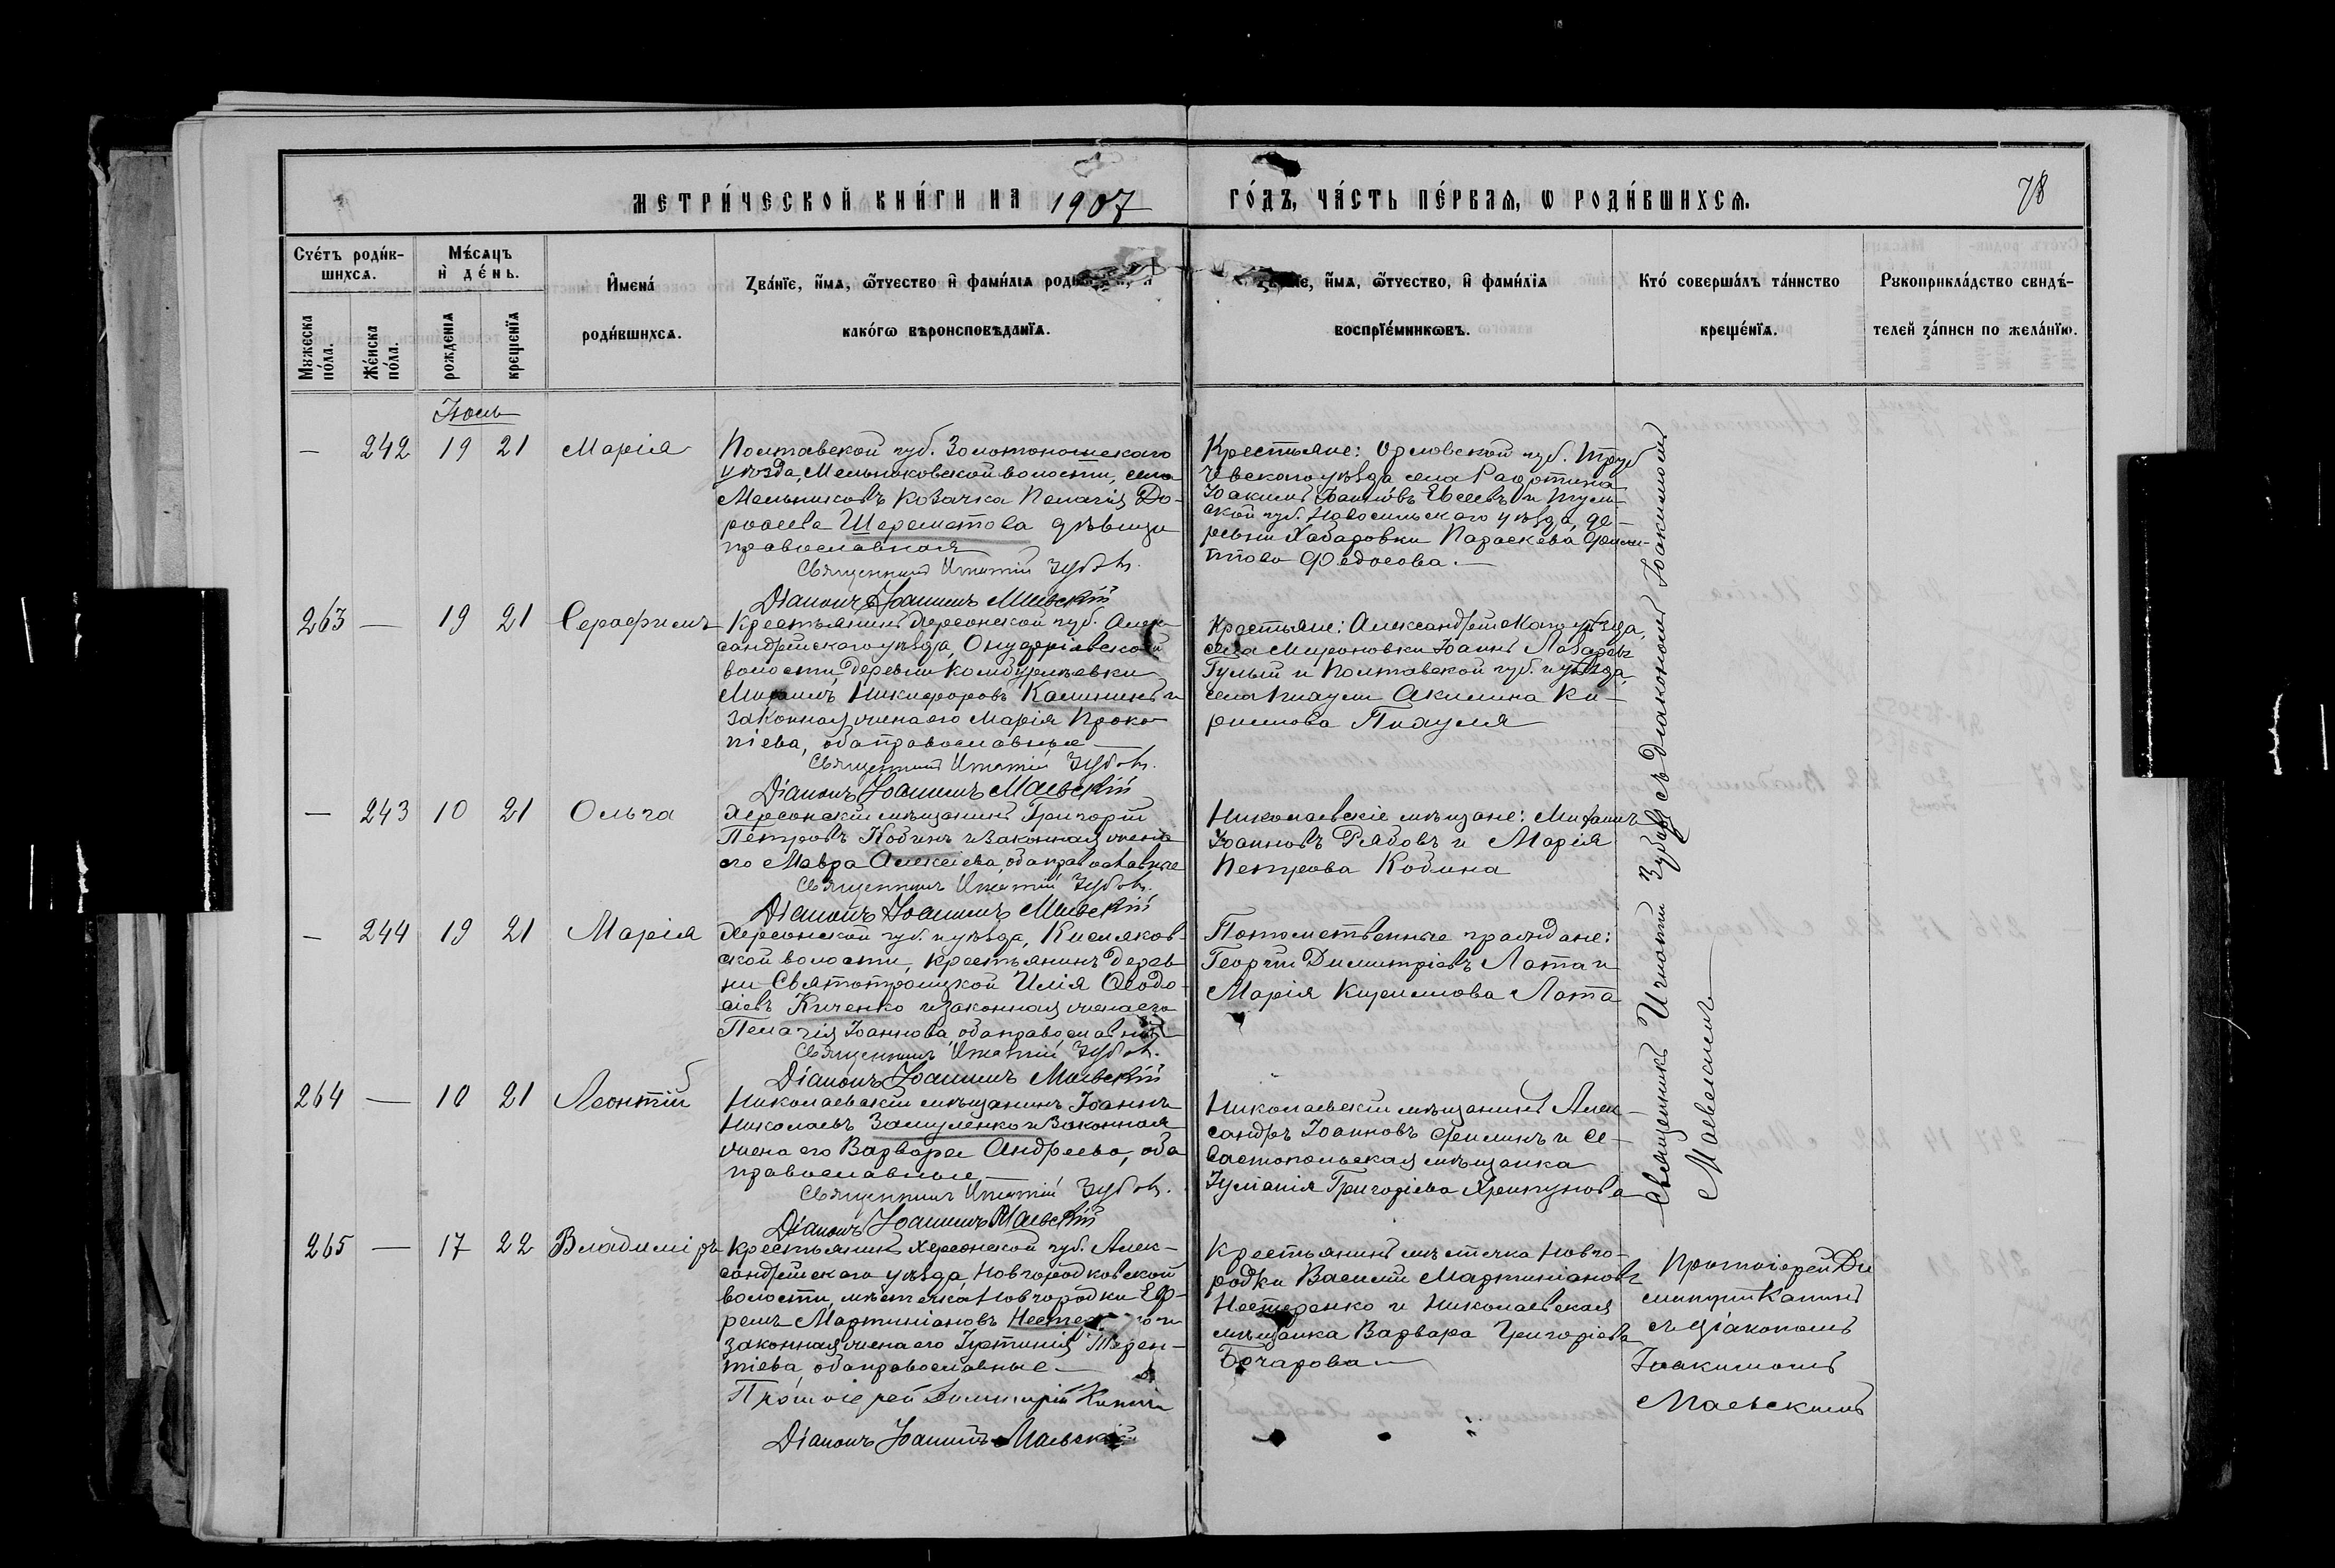 МЕТРИ́ЧЕСКОЙ КНИ́ГИ НА 1907
ГО́ДЪ, ЧА́СТЬ ПЕ́РВАѦ, Ѡ РОДИ́ВШИХСѦ.
78
Сче́тъ роди́в-
шихсѧ.
Мѣ́сѧцъ
и҆ де́нь.
И҆мена́
роди́вшихсѧ.
Зва́нїе, и҆́мѧ, ѻ҆́тчество и҆ фами́лїа
како́гѡ вѣроисповѣ́данїѧ.
и҆́мѧ, ѻ҆́тчество, и҆ фами́лїа
воспрїе́мникѡвъ.
Кто́ соверша́лъ та́инство
креще́нїѧ.
Рꙋкоприкла́дство свидѣ́-
телей за́писи по жела́нїю.
Мꙋжеска
по́ла.
Же́нска
по́ла.
рожденїѧ
крещенїѧ
Іюль
— 242 19 21 Марія
Полтавской губ. Золотоношскаго
уѣзда, Мельниковской волости, села
Мельниковъ козачка Пелагія До-
роѳеева Шереметова дѣвица
православная
Священникъ Игнатій Зубовъ.
Діаконъ Іоакимъ Маевскій
Крестьяне: Орловской губ. Труб
чевскаго уѣзда села
Іоакимъ Евсеевъ и Туль-
ской губ. Новосильскаго уѣзда, де-
ревни Хабаровки Параскева Филип-
пова Федосова.
263 — 19 21 Серафимъ
Крестьянинъ Херсонской губ. Алек-
сандрійскаго уѣзда, Онуфріевской
волости, деревни
Михаилъ Никифоровъ Калининъ и
законная жена его Марія Проко-
піева, оба православные
Священникъ Игнатій Зубовъ.
Діаконъ Іоакимъ Маевскій
Крестьяне: Александрійскаго уѣзда,
села Мироновки Іоаннъ Лазаревъ
Гулый и Полтавской губ. и уѣзда,
села Акилина Ки-
рилова
— 243 10 21 Ольга
Херсонскій мѣщанинъ Григорій
Петровъ Кобинъ и законная жена
его Мавра Алексіева, оба православные
Священникъ Игнатій Зубовъ.
Діаконъ Іоакимъ Маевскій
Николаевскіе мѣщане: Михаилъ
Іоанновъ Рябовъ и Марія
Петрова Кобина
— 244 19 21 Марія
Херсонской губ. и уѣзда, Кисляков-
ской волости, крестьянинъ дерев-
ни Святотроицкой Илія Ѳеодо-
сіевъ Киченко и законная жена его
Пелагія Іоаннова, оба православные
Священникъ Игнатій Зубовъ.
Діаконъ Іоакимъ Маевскій
Потомственные граждане:
Георгій Димитріевъ Лата и
Марія Кириллова Лата
264 — 10 21 Леонтій
Николаевскій мѣщанинъ Іоаннъ
Николаевъ Замуленко и законная
жена его Варвара Андреева, оба
православные
Священникъ Игнатій Зубовъ.
Діаконъ Іоакимъ Маевскій
Николаевскій мѣщанинъ Алек-
сандръ Іоанновъ Филинъ и Се-
вастопольская мѣщанка
Іуліанія Григоріева Хрипунова
Священникъ Игнатій Зубовъ съ діакономъ Іоакимомъ
Маевскимъ
265 — 17 22 Владиміръ
Крестьянинъ Херсонской губ. Алек-
сандрійскаго уѣзда, Новгородковской
волости, мѣстечка Новгородки Еф-
ремъ Мартиніановъ и
законная жена его Іустинія Терен-
тіева, оба православные
Протоіерей Димитрій Капинъ
Діаконъ Іоакимъ Маевскій
Крестьянинъ мѣстечка Новго-
родки Василій Мартиніановъ
Нестеренко и Николаевская
мѣщанка Варвара Григоріева
Бочарова
Протоіерей Ди
митрій Капинъ
съ діакономъ
Іоакимомъ
Маевскимъ